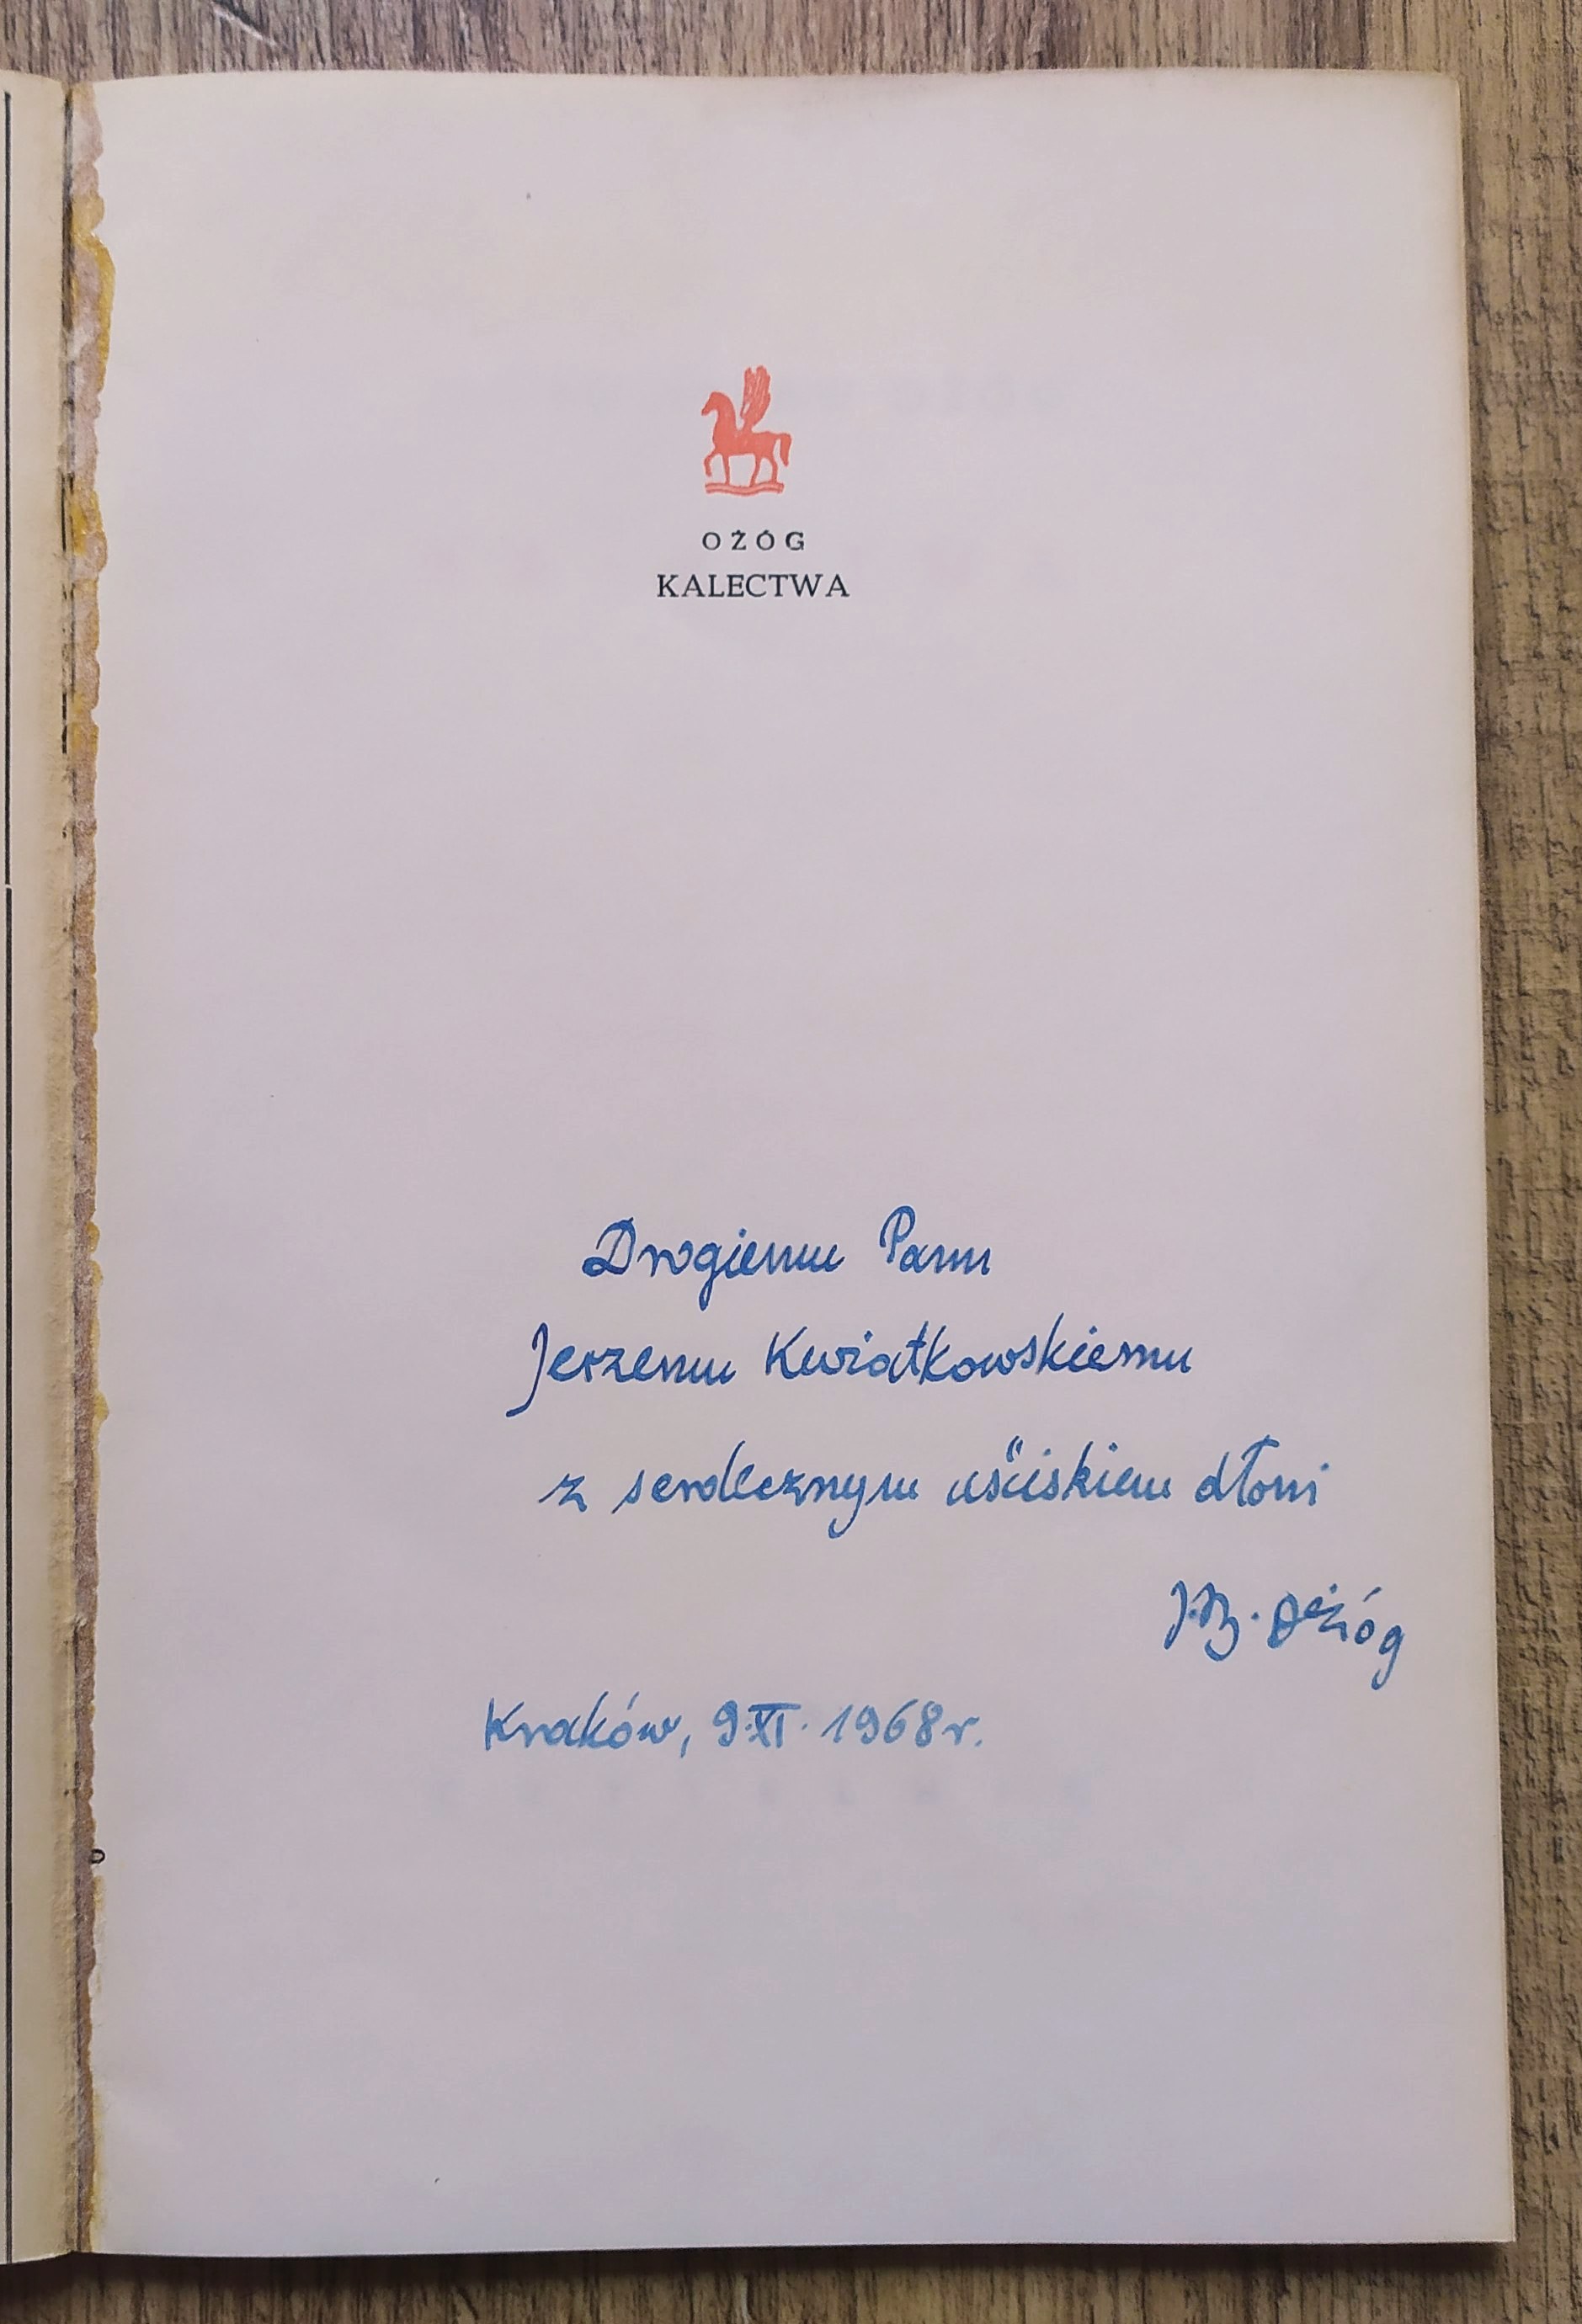 OŻÓG
KALECTWA
Drogiemu Panu
Jerzemu Kwiatkowskiemu
z serdecznym uściskiem dłoni
J.B. Ożóg
Kraków, 9.XI. 1968r.